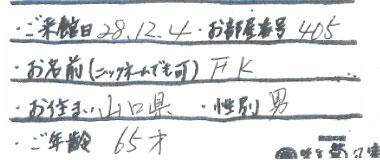 ・ご来館日 28.12.4・お部屋番号 405
・お名前(ニックネームでも可) F K
・お住まい 山口県 ・性別 男
・ご年齢 65才